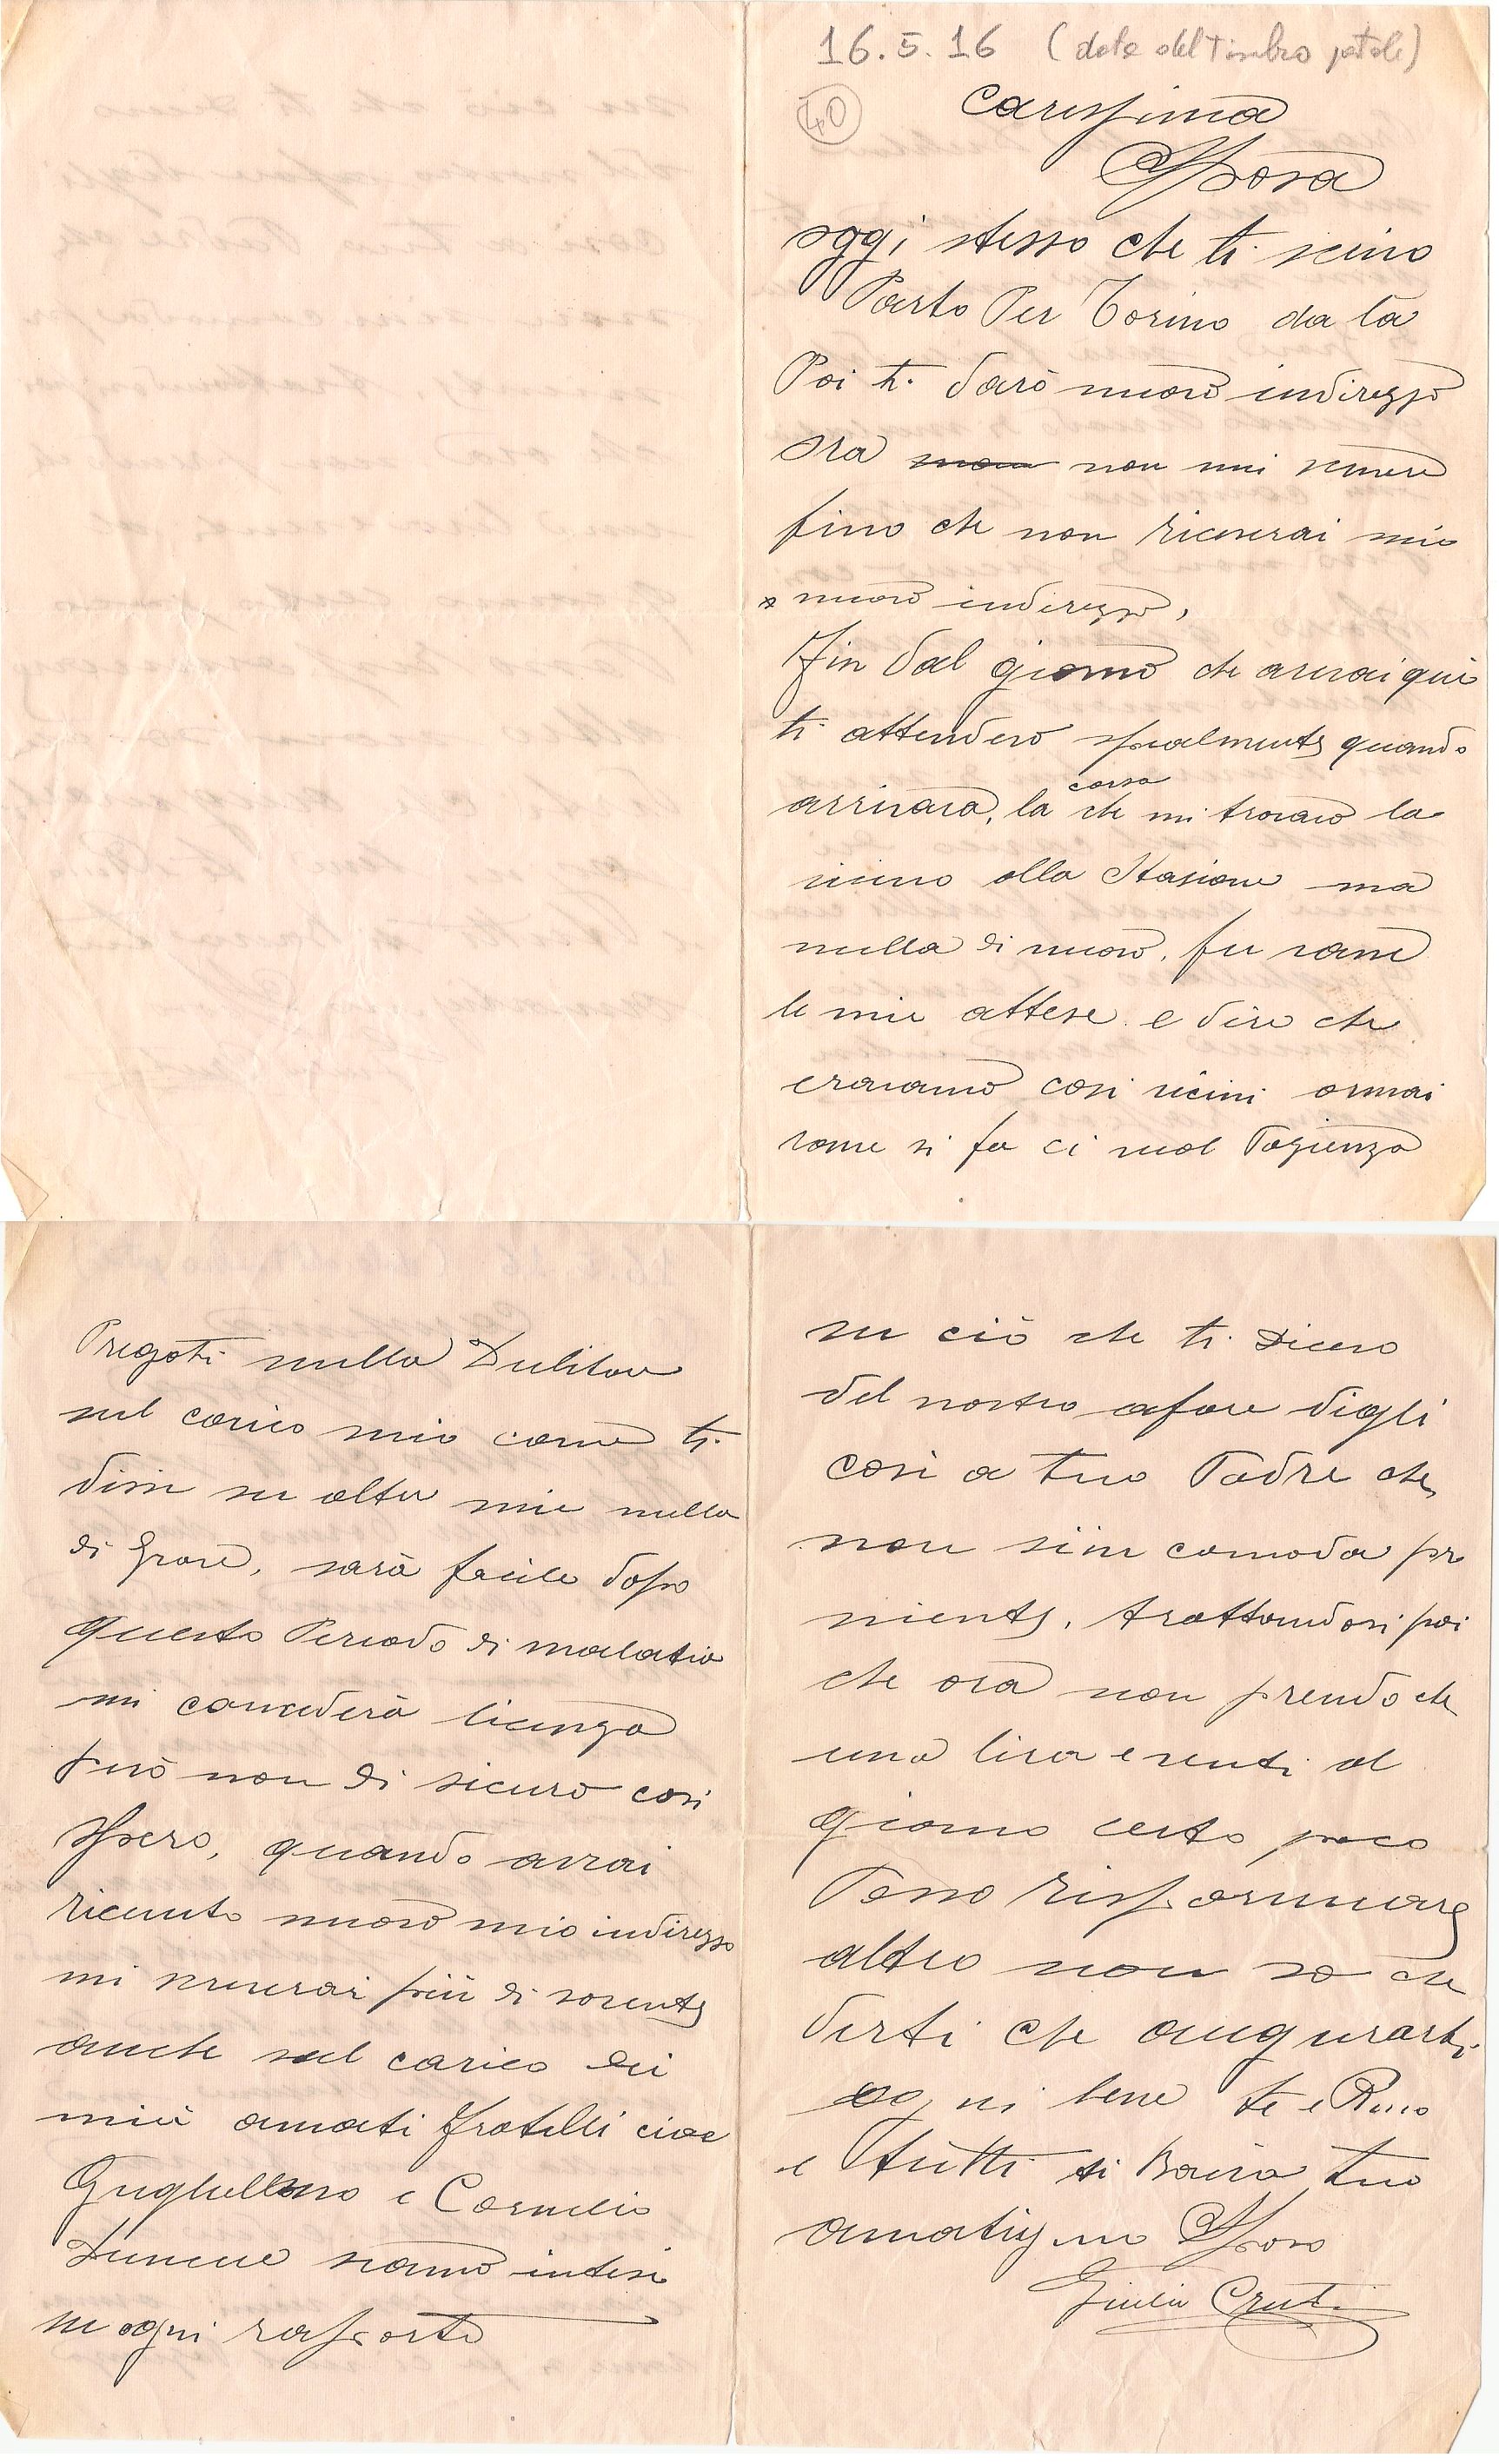 16.5.16 (data del timbro postale)
40
Carissima
Sposa
oggi stesso che ti scivo
Parto Per Torino da la
Poi ti darò nuovo indirizzo
ora non non mi scrivere
fino che non riceverai mio
nuovo indirizzo,
Fin dal giorno che arivai qui
ti attendevo specialmente quando
arrivava, la corsa che mi trovavo la
vicino alla Stasione ma
nulla di nuovo, fu vane
le mie attese e dire che
eravamo cosi vicini ormai
come si fa ci vuol Pazienza
Pregoti nulla Dubitare
sul carico mio come ti
dissi su altre mie nulla
di grave, sarà facile dopo
questo Periodo di malatia
mi concederà licenza
però non di sicuro cosi
spero, quando avrai
ricevuto nuovo mio indirizzo
mi scriverai più di sovente
anche sul carico dei
miei amati fratelli cioe
Guglielmo e Cornelio
siamo intesi
su ogni rapporto
su ciò che ti dicevo
del nostro afare digli
cosi a tuo Padre che
non si in comoda per
niente, trattandosi poi
che ora non prendo che
una lira e venti al
giorno certo poco
Posso risparmiare
altro non so che
dirti che augurarti
ogni bene te e
e Tutti ti Bacia tuo
amatissimo Sposo
Giulio